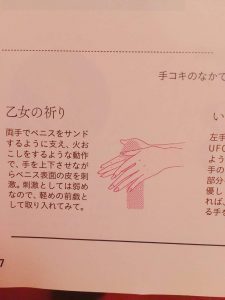 手コキのなかで
乙女の祈り
両手でペニスをサンド
するように支え、火お
こしをするような動作
で、手を上下させなが
らペニス表面の皮を刺
激。刺激としては弱め
なので、軽めの前戯と
して取り入れてみて。
い
左手
UFO
よう
手の
部分
優し
れば、
る手を
7